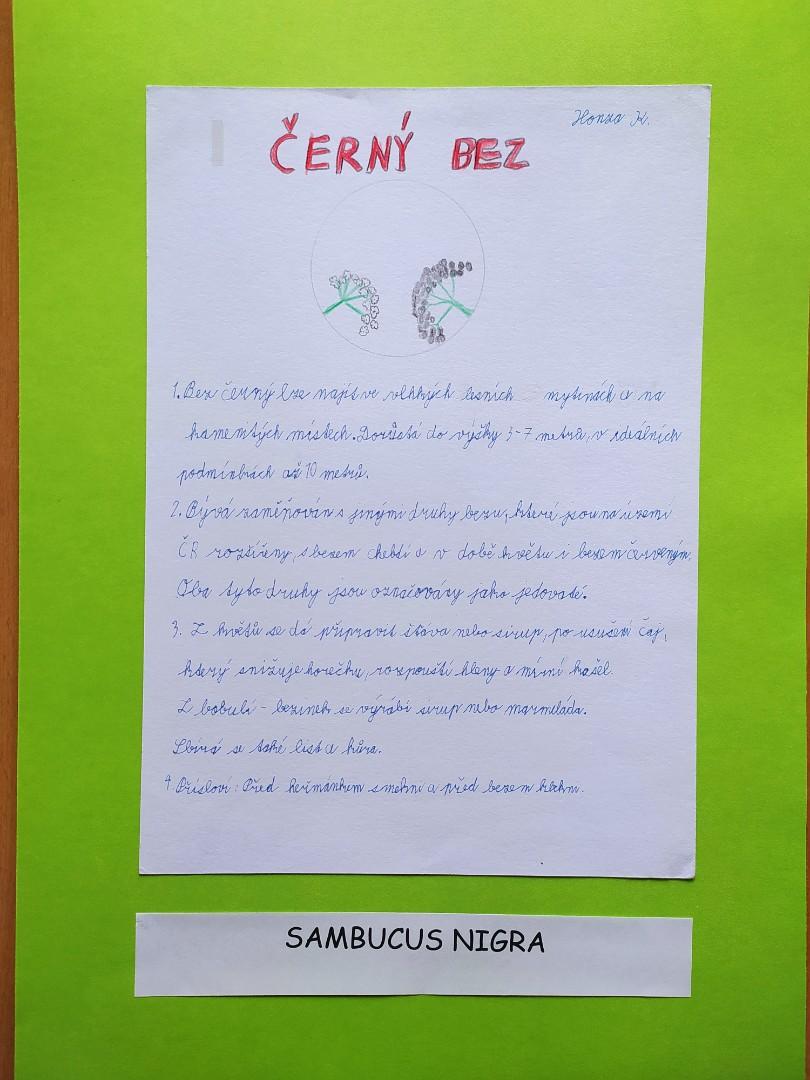 Honza K.
ČERNÝ BEZ
1. Bez černý lze najít ve vlhkých lesních mýtinách a na
kamenitých místech. Dorůstá do výšky 3-7 metrů, v ideálních
podmínkách až 10 metrů.
2. Bývá zaměňován s jinými druhy bezu, které jsou na území
ČR rozšířeny, s bezem chebdí a v době květu i bezem červeným.
Oba tyto druhy jsou označovány jako jedovaté.
3. Z květů se dá připravit šťáva nebo sirup, po usušení čaj,
který snižuje horečku, rozpouští hleny a mírní kašel.
Z bobulí - bezinek se vyrábí sirup nebo marmeláda.
Sbírá se také list a kůra.
4. Přísloví: Před heřmánkem smekni a před bezem klekni.
SAMBUCUS NIGRA